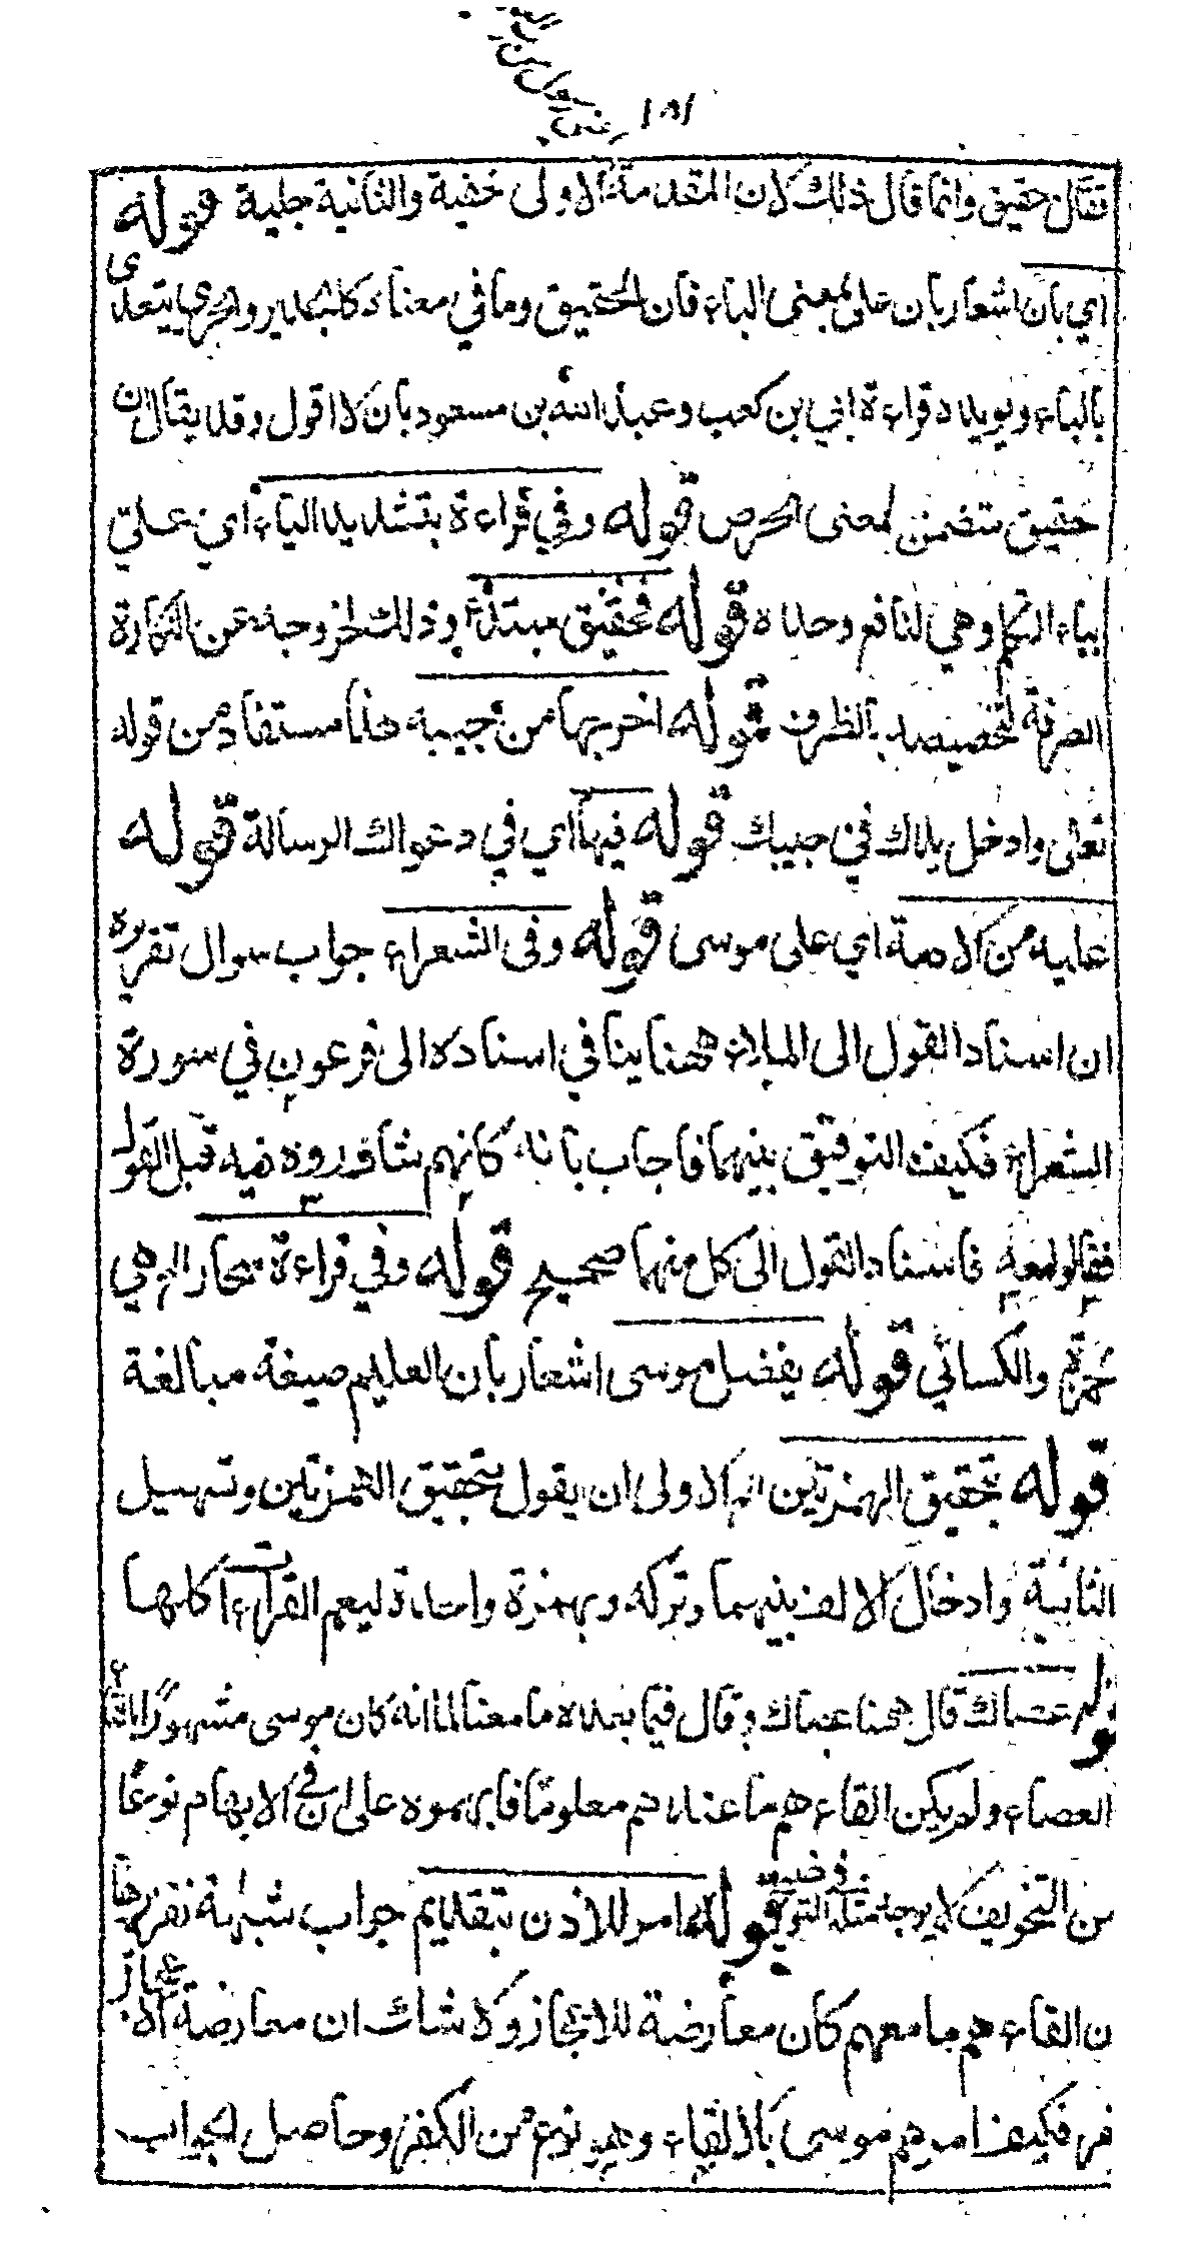 ١٨١
فقال حقيق وانما قال ذلك لان المقدمة الاولى خفية والثانية جلية قوله
اي بان اشعار بان على بمعنى الباء فان الحقيق وما في معناه كالجدير والحري يتعدى
بالباء ويويده قراءة ابي بن كعب وعبد الله بن مسعود بان لا اقول وقد يقال ان
حقيق متضمن لمعنى الحرص قوله وفي قراءة بتشديد الياء اي علي
بياء المتكلم وهي لنافع وحده قوله فحقيق مبتدأ وذلك لخروجه عن النكارة
الصرفة لتخصيصه بالظرف قوله اخرجها من جيبه هذا مستفاد من قوله
تعالى وادخل يدك في جيبك قوله فيها اي في دعواك الرسالة قوله
عليه من الادمة اي على موسى قوله وفى الشعراء جواب سوال تقريره
ان اسناد القول الى الملاء ههنا ينافي اسناده الى فرعون في سورة
الشعراء فكيف التوفيق بينهما فاجاب بانه كانهم شاوروه فيه قبل القول
فقالوا معه فاسناد القول الى كل منهما صحيح قوله وفي قراءة سحار الخ هي
لحمزة والكسائي قوله يفضل موسى اشعار بان العليم صيغة مبالغة
قوله بتحقيق الهمزتين الخ الاولى ان يقول بتحقيق الهمزتين وتسهيل
الثانية وادخال الالف بينهما وتركه وبهمزة واحدة ليعم القراءات كلها
قوله عصاك قال ههنا عصاك وقال فيما بعده ما معنا لما انه كان موسى مشهورا بالقاء
العصاء ولم يكن القاء هم ما عندهم معلوما فابهموه على ان في الابهام نوعا
من التخويف لا يوجد مثله في التوضيح قوله امر للاذن بتقديم جواب شبهة تقريرها
ان القاء هم ما معهم كان معارضة للاعجاز ولا شك ان معارضة الاعجاز
فر فكيف امرهم موسى بالالقاء وهو نوع من الكفر وحاصل الجواب